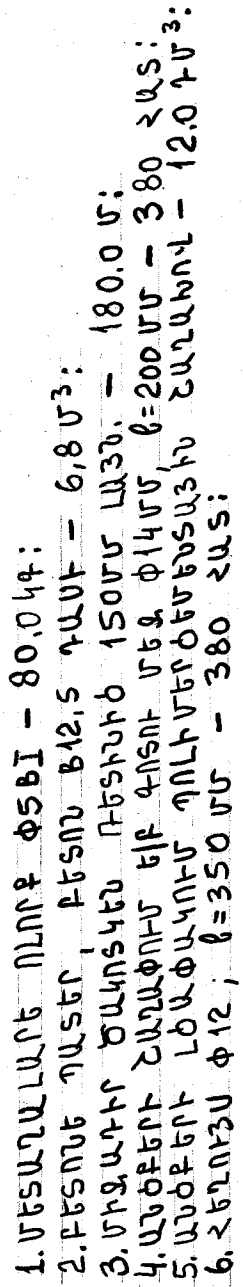 1. ՄԵՏԱՂԱԼԱՐԵ ՈԼՈՐՔ Φ5BI – 80.0 ԿԳ:
2. ԲԵՏՈՆԵ ՊԱՏԵՐ, ԲԵՏՈՆ B12,5 ԴԱՍԻ – 6,8 Մ³:
3. ՄԻՋԱԴԻՐ ԾԱԿՈՏԿԵՆ ՌԵՏԻՆԻՑ 150ՄՄ ԼԱՅՆ. – 180.0 Մ:
4. ԱՆՑՔԵՐԻ ՇԱՂԱՓՈՒՄ Ե/Բ ԳՈՏՈՒ ՄԵՋ Φ14ՄՄ, ℓ=200ՄՄ – 380 ՀԱՏ:
5. ԱՆՑՔԵՐԻ ԼՑԱՓԱԿՈՒՄ ՊՈԼԻՄԵՐՑԵՄԵՆՏԱՅԻՆ ՇԱՂԱԽՈՎ – 12.0 ԴՄ³:
6. ՀԵՂՈՒՅՍ Φ12, ℓ=350 ՄՄ – 380 ՀԱՏ: